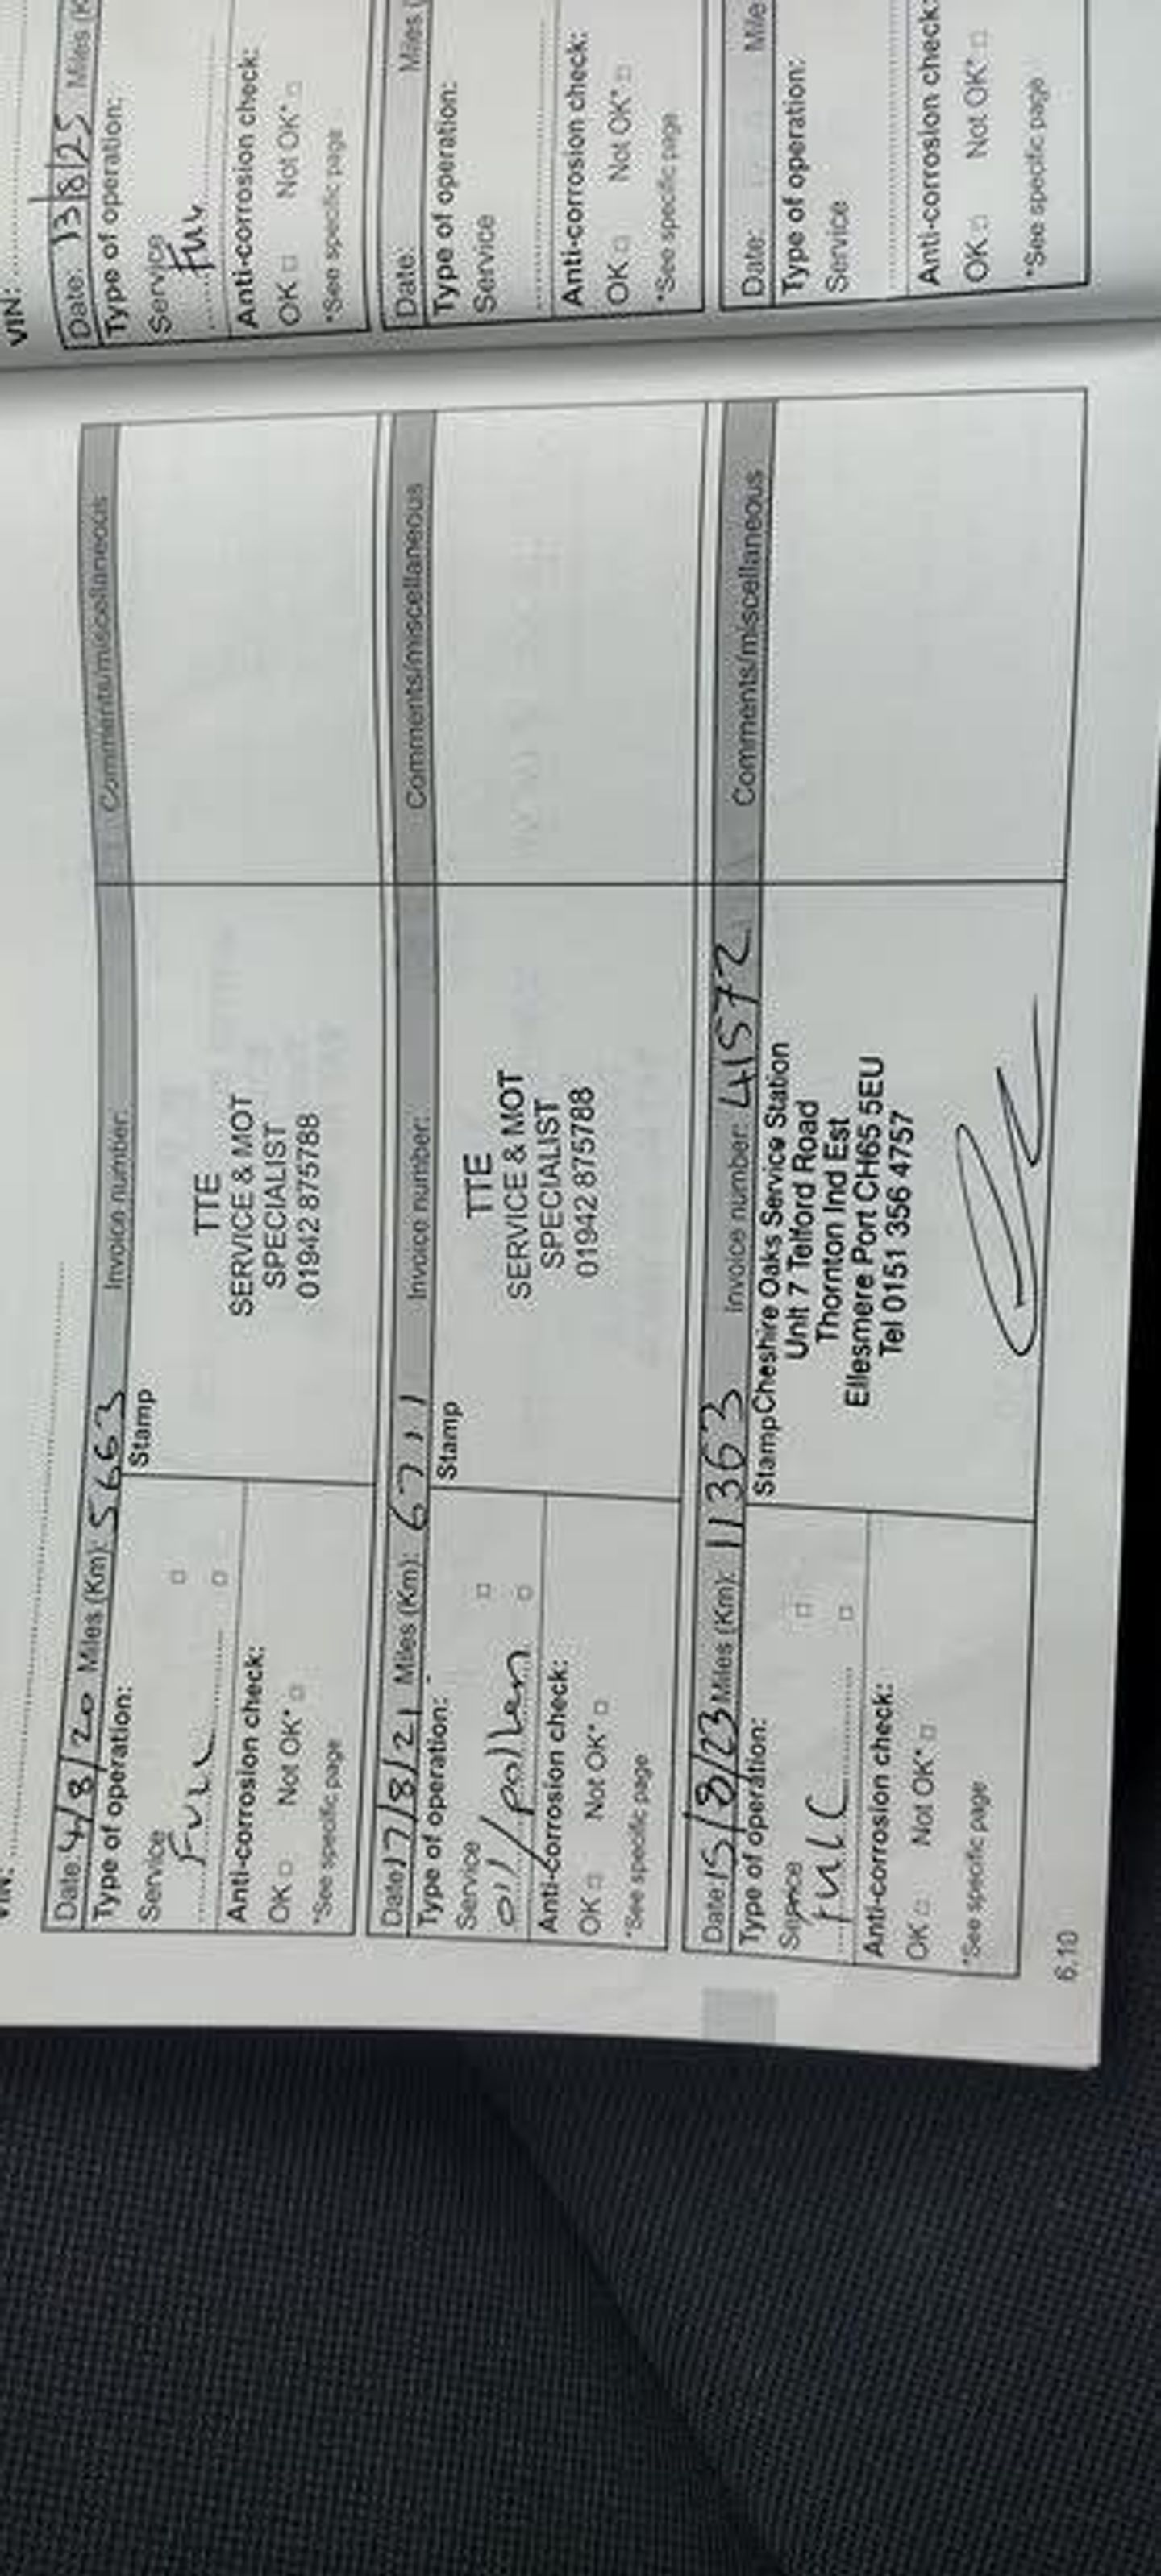 VIN:
Date: 4/8/20 Miles (Km): 5663 Invoice number: Comments/miscellaneous
Type of operation:
Stamp
Service
Full
TTE
SERVICE & MOT
SPECIALIST
01942 875788
Anti-corrosion check:
OK □ Not OK* □
*See specific page
Date: 17/8/21 Miles (Km): 6711 Invoice number: Comments/miscellaneous
Type of operation:
Stamp
Service
oil/pollen
TTE
SERVICE & MOT
SPECIALIST
01942 875788
Anti-corrosion check:
OK □ Not OK* □
*See specific page
Date: 15/8/23 Miles (Km): 11363 Invoice number: 41572 Comments/miscellaneous
Type of operation:
Stamp
Service
Full
Cheshire Oaks Service Station
Unit 7 Telford Road
Thornton Ind Est
Ellesmere Port CH65 5EU
Tel 0151 356 4757
Anti-corrosion check:
OK □ Not OK* □
*See specific page
6.10
VIN:
Date: 13/8/25 Miles (K
Type of operation:
Service
Full
Anti-corrosion check:
OK □ Not OK* □
*See specific page
Date: Miles (
Type of operation:
Service
Anti-corrosion check:
OK □ Not OK* □
*See specific page
Date: Mile
Type of operation:
Service
Anti-corrosion check:
OK □ Not OK* □
*See specific page